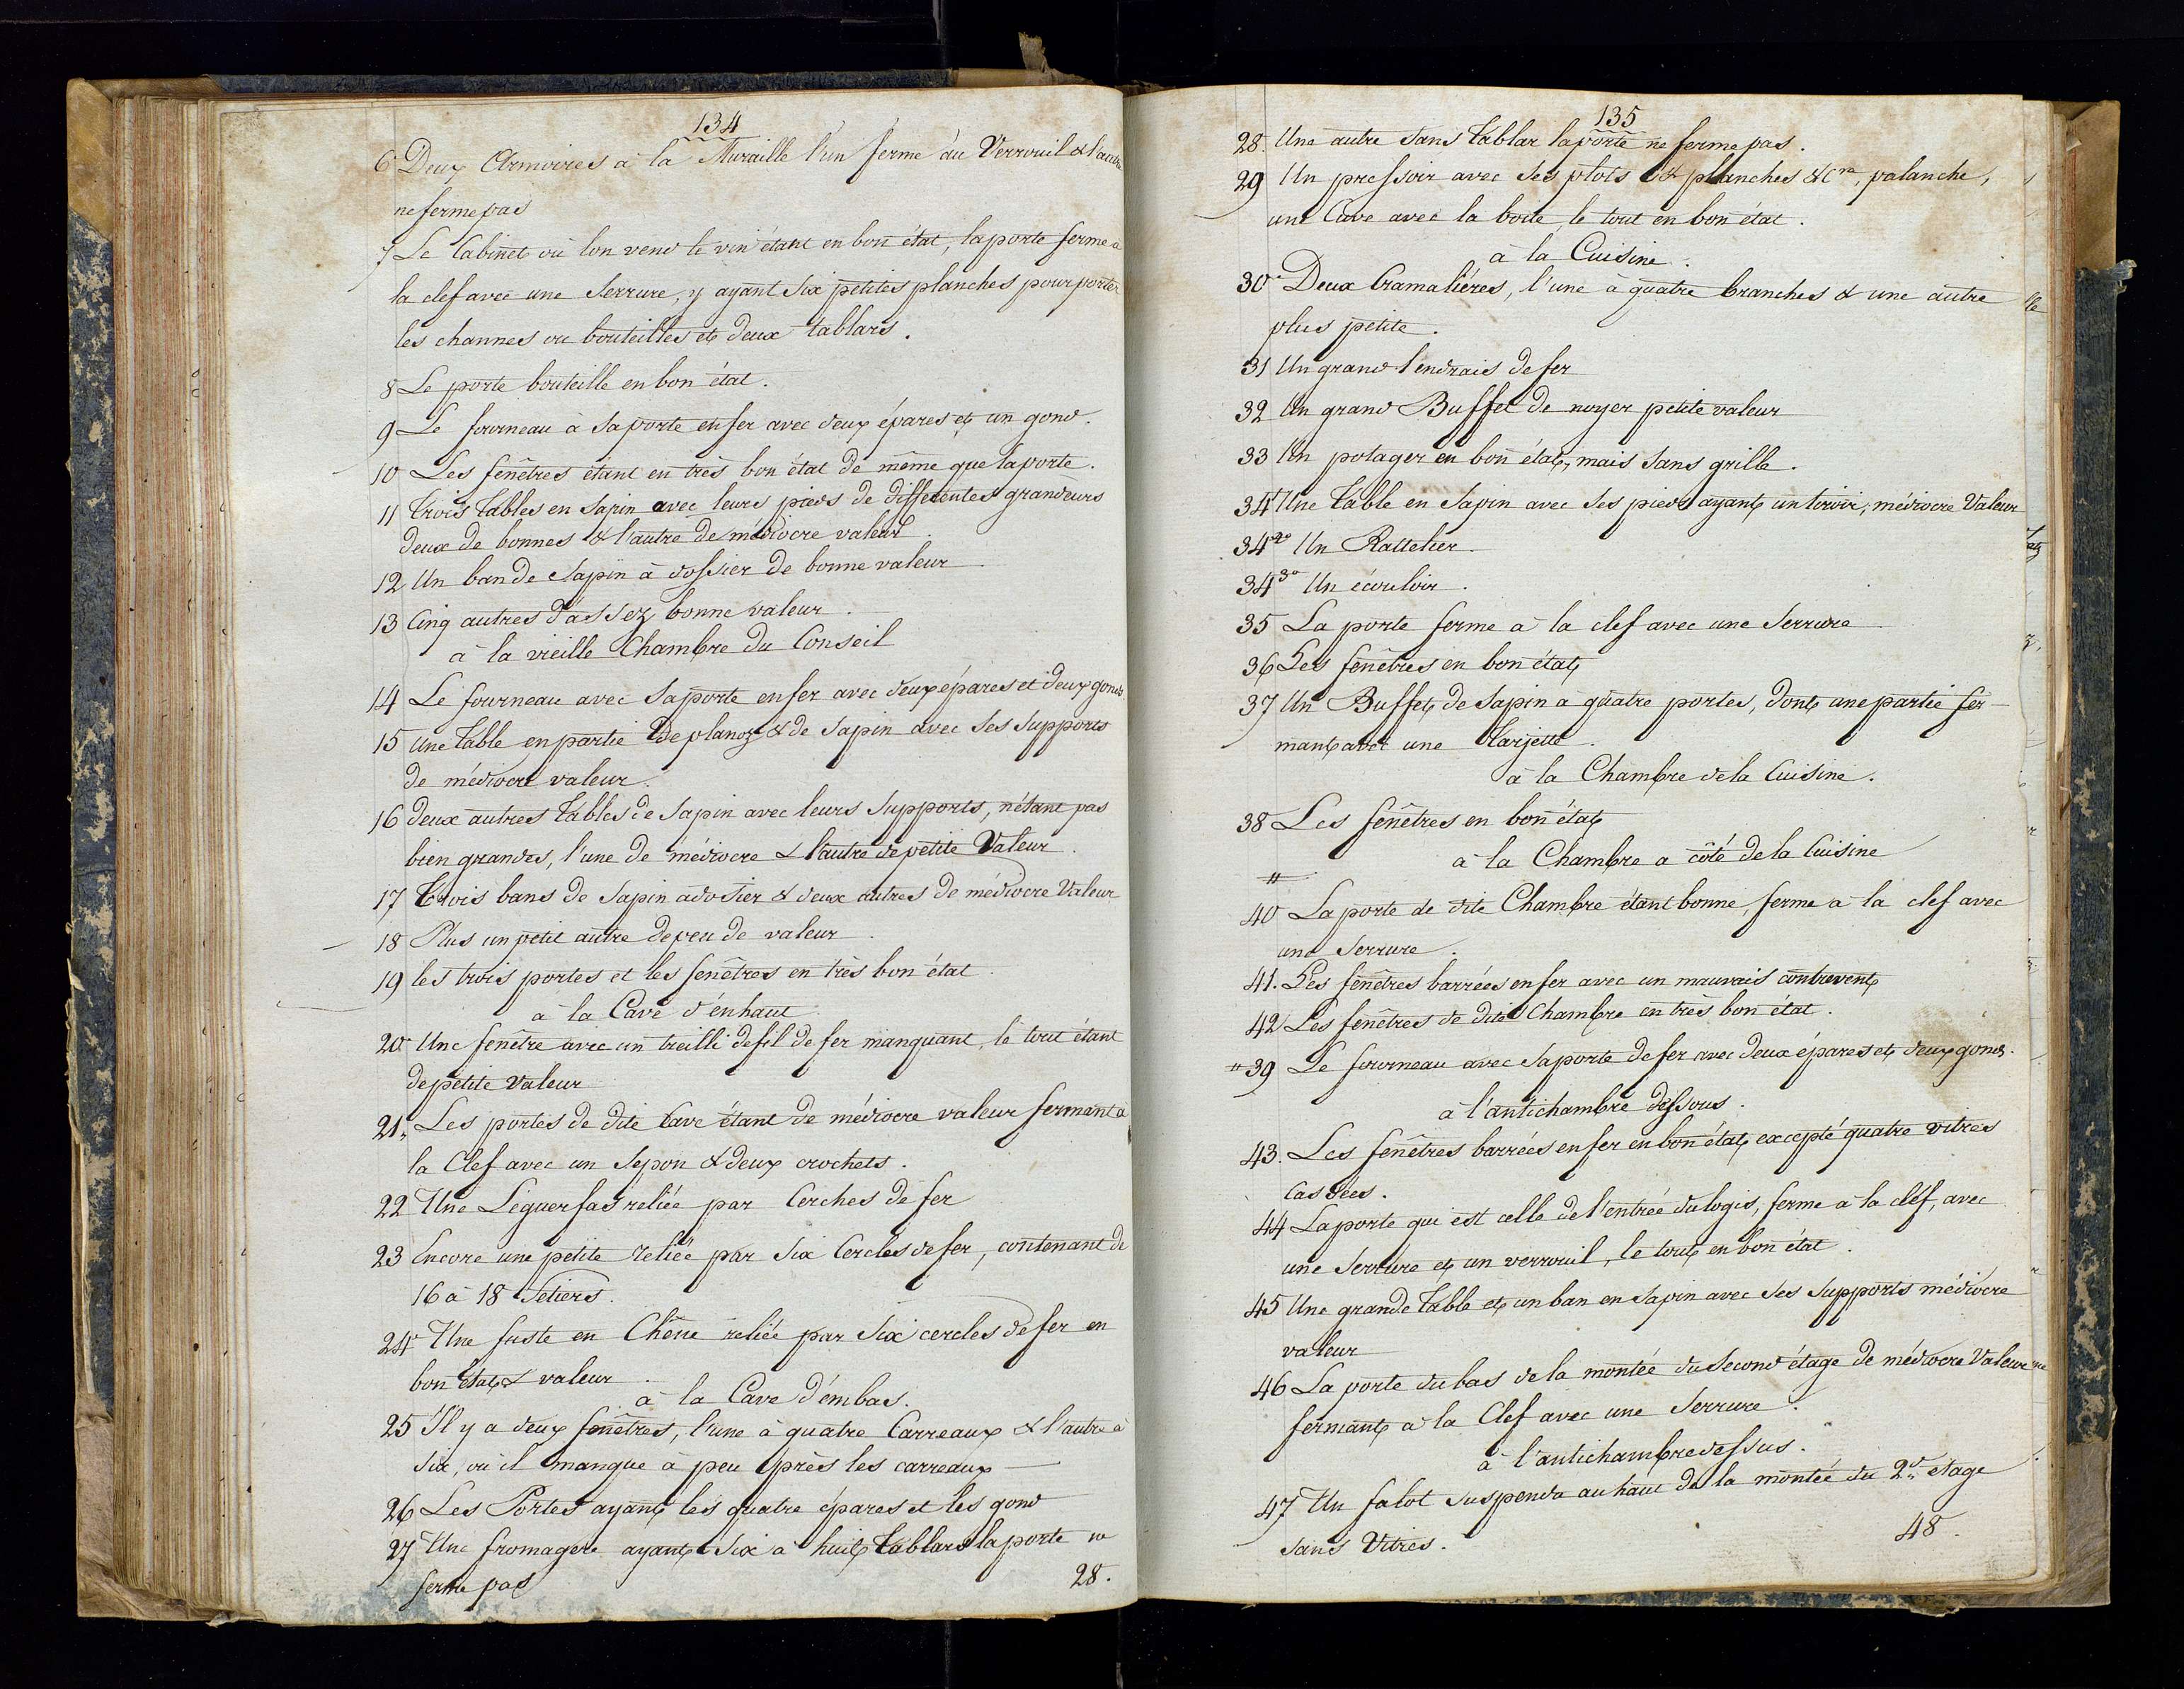 134
6 Deux Armoires à la Muraille l'un ferme au Verrouil & l'autre
ne ferme pas
7 Le Cabinet où lon vend le vin étant en bon état, la porte ferme à
la clef avec une Serrure, y ayant Six petites planches pour porter
les channes ou bouteilles et deux tablars.
8 Le porte bouteille en bon état.
9 Le fourneau à sa porte en fer avec deux épares et un gond.
10 Les fenêtres étant en très bon état de même que la porte.
11 Trois Tables en Sapin avec leurs pieds de differentes grandeurs
deux de bonnes & l'autre de médiocre valeur.
12 Un ban de Sapin à dossier de bonne valeur
13 Cinq autres d'assez bonne valeur.
à la vieille Chambre du Conseil
14 Le fourneau avec Sa porte en fer avec deux épares et deux gonds
15 une Table en partie de planoz & de Sapin avec Ses Supports
de médiocre valeur.
16 deux autres Tables de Sapin avec leurs Supports, n'étant pas
bien grandes, l'une de médiocre & l'autre de petite Valeur.
17 Trois bans de Sapin adosier & deux autres de médiocre Valeur
18 Plus un petit autre de peu de valeur.
19 les trois portes et les fenêtres en très bon état.
à la Cave d'enhaut.
20 Une fenêtre avec un treilli de fil de fer manquant, le tout étant
de petite Valeur
21. Les portes de dite Cave étant de médiocre valeur fermant à
la Clef avec un Sepon & deux crochets.
22 Une Léguerfas reliée par Cerches de fer
23 Encore une petite reliée par Six Cercles de fer, contenant de
16 à 18 Setiers.
24 Une fuste en Chêne reliée par Six cercles de fer en
bon état & valeur.
à la Cave d'embas.
25 Il y a deux fenêtres, l'une à quatre Carreaux & l'autre à
Six, où il manque à peu près les carreaux
26 Les Portes ayant les quatre épares et les gond
27 Une fromagere ayant Six à huit Tablars la porte ne
ferme pas
28.
135
28. Une autre sans Tablar la porte ne ferme pas.
29 Un pressoir avec Ses plots & planches &Cra, palanche,
une Cuve avec la boite, le tout en bon état.
à la Cuisine.
30 Deux Cramaliéres, l'une à quatre branches & une autre
plus petite.
31 Un grand l'endrais de fer
32 Un grand Buffet de noyer petite valeur
33 Un potager en bon état, mais sans grille.
34 Une Table en Sapin avec Ses pieds ayant un tiroir, médiocre Valeur
34 2o Un Rattelier.
34 3o Un écouloir.
35 La porte ferme à la clef avec une Serrure
36 Les fenêtres en bon état
37 Un Buffet de Sapin à quatre portes, dont une partie fer-
mant avec une Targette.
à la Chambre de la Cuisine.
38 Les fenêtres en bon état
à la Chambre a côté de la Cuisine
"
40 La porte de dite Chambre étant bonne, ferme à la clef avec
une Serrure.
41. Les fenêtres barrées en fer avec un mauvais contrevent
42 Les fenêtres de dite Chambre en très bon état.
" 39 Le fourneau avec Sa porte de fer avec deux épares et deux gonds.
à l'antichambre dessous.
43. Les fenêtres barrées en fer en bon état, excepté quatre vitres
Cassées.
44 La porte qui est celle de l'entrée du logis, ferme à la cléf, avec
une Serrure et un verrouil, le tout en bon état.
45 Une grande Table et un ban en Sapin avec Ses Supports médiocre
valeur
46 La porte du bas de la montée du Second étage de médiocre Valeur
fermant à la Clef avec une Serrure.
à l'antichambre dessus.
47 Un falot suspendu au haut de la montée du 2d etage
sans Vitres.
48.